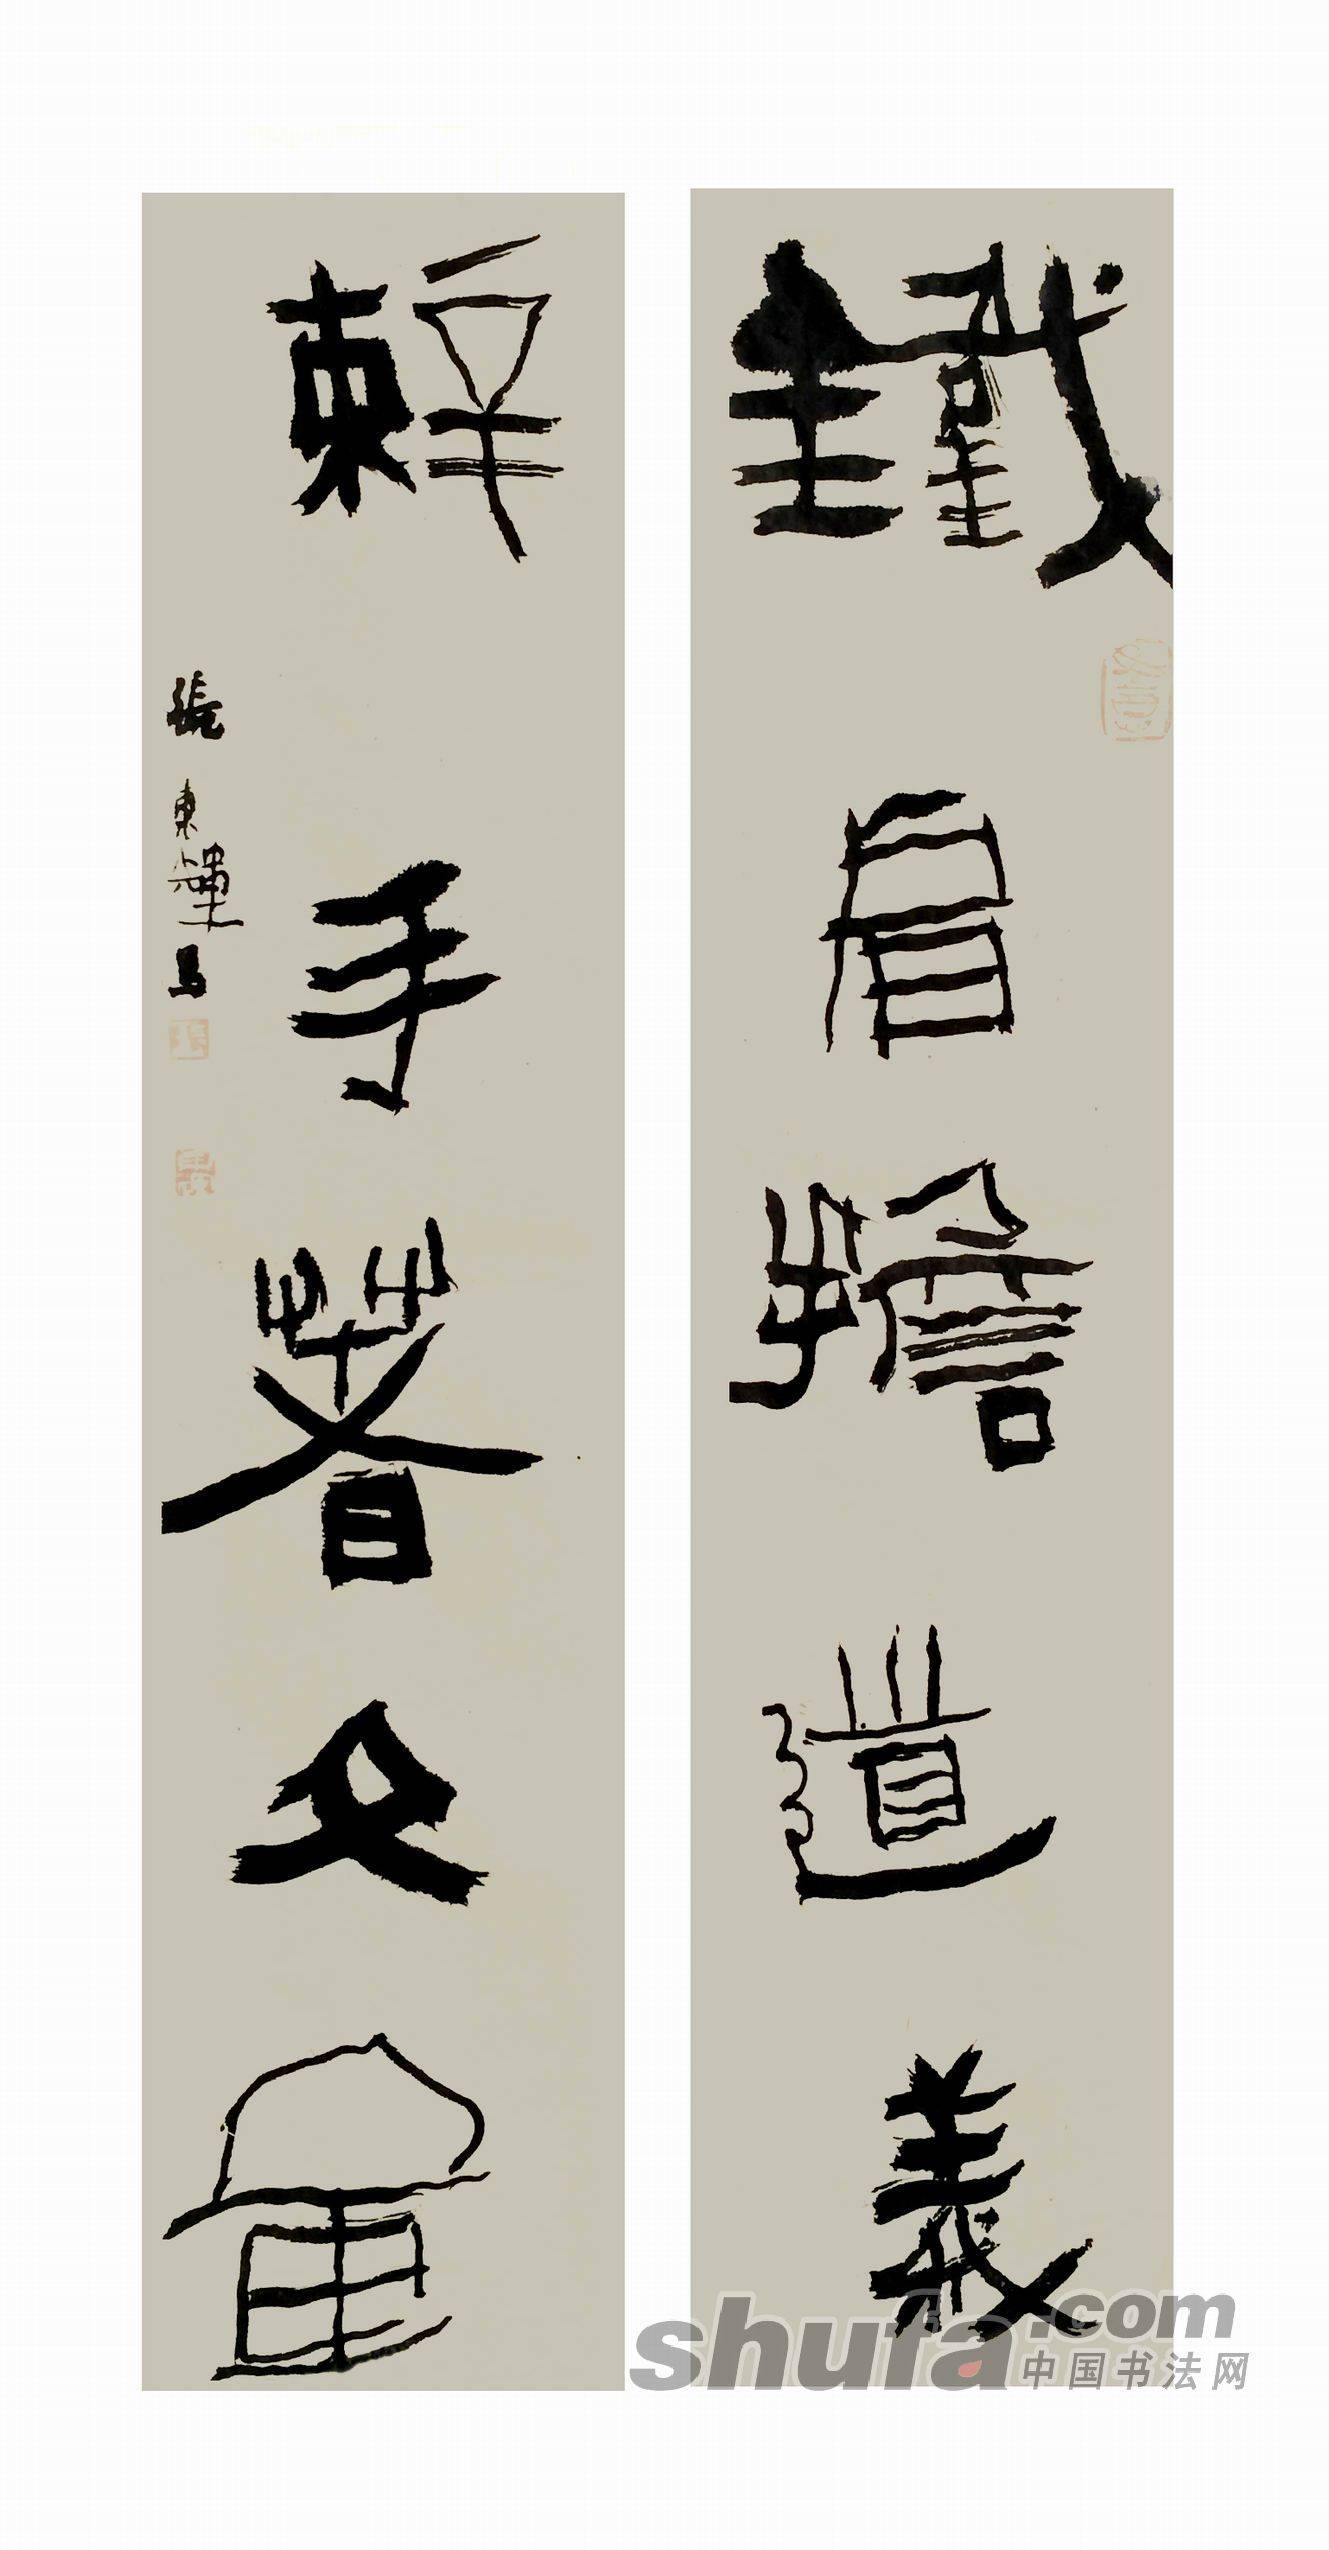 鐵肩擔道義
辣手著文章
張東輝書
shufa.com
中国书法网